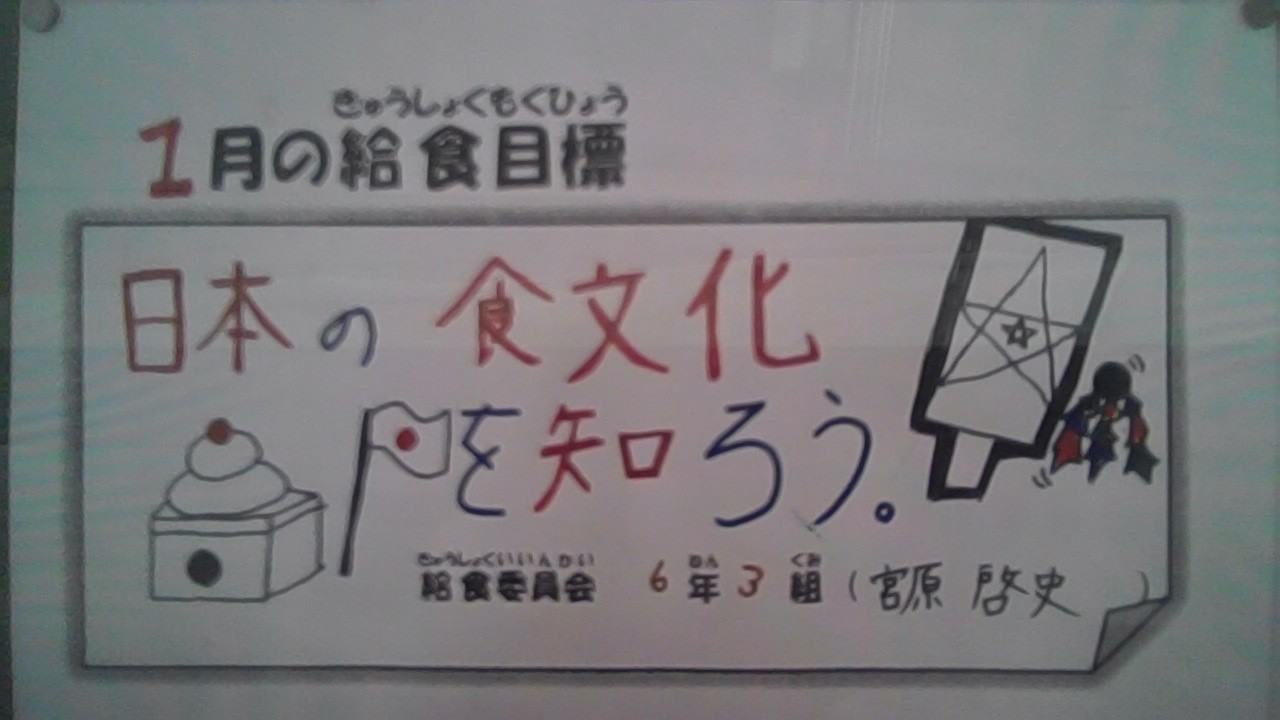 きゅうしょくもくひょう
1月の給食目標
日本の食文化
を知ろう。
きゅうしょくいいんかい ねん くみ
給食委員会 6年3組(宮原 啓史)